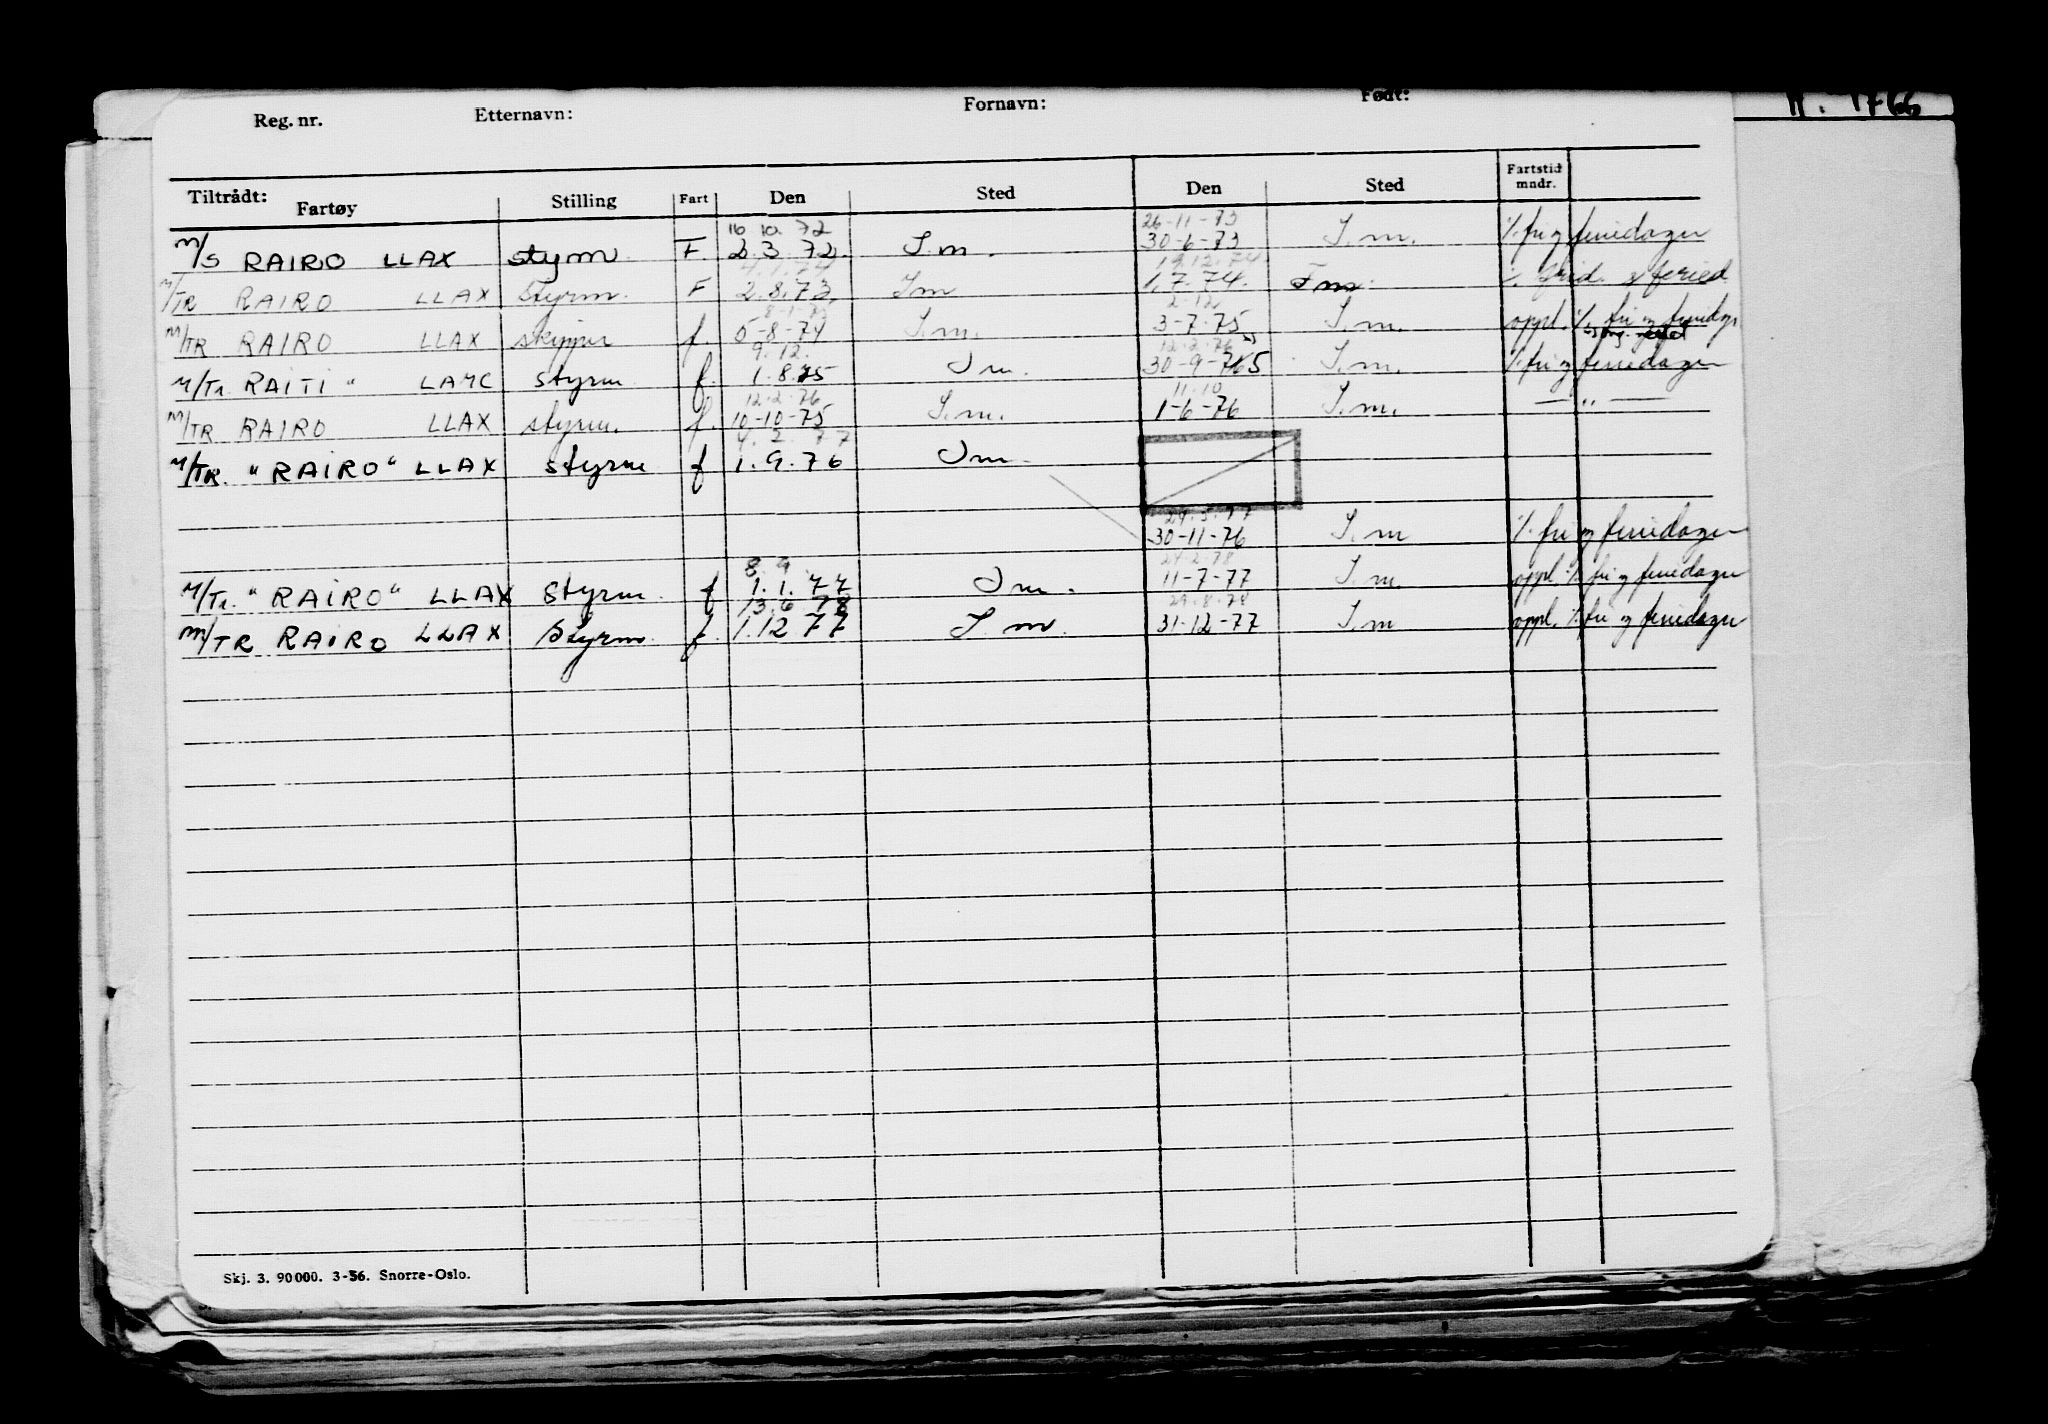 Reg. nr. Etternavn: Fornavn: Født:
Tiltrådt: Fartøy Stilling Fart Den Sted Den Sted Fartstid mndr.
16 10. 72 26-11-73
M/S RAIRO LLAX styrm F. 2.3.72. I.m. 30-6-73 I.m. ./. fri og feriedager
4.1.74 19.12.74
M/TR RAIRO LLAX Styrm. F 2.8.73. Im 1.7.74. Im. ./. frid. & feried
2-12
M/TR RAIRO LLAX skipper f. 5-8-74 I.m. 3-7-75 I.m. oppl. ./. fri og feriedgr
9.12. 12.2.76
M/Tr. RAITI " LAMC styrm f. 1.8.75 Im. 30-9-765 I.m. ./. fri og feriedager
12.2.76 11.10
M/TR RAIRO LLAX styrm. f. 10-10-75 I.m. 1-6-76 I.m. — " —
4.2.77
M/TR. "RAIRO" LLAX styrm f 1.9.76 Im.
24.5.77
30-11-76 I.m ./. fri og feriedager
8.9 24-2-78
M/Tr. "RAIRO" LLAX styrm. f 1.1.77 Im. 11-7-77 I.m. oppl ./. fri og feriedager
13.6 78 29.8.78
M/TR RAIRO LLAX styrm. f. 1.12 77 I.m. 31-12-77 I.m oppl. ./. fri og feriedager
Skj. 3. 90000. 3-56. Snorre-Oslo.